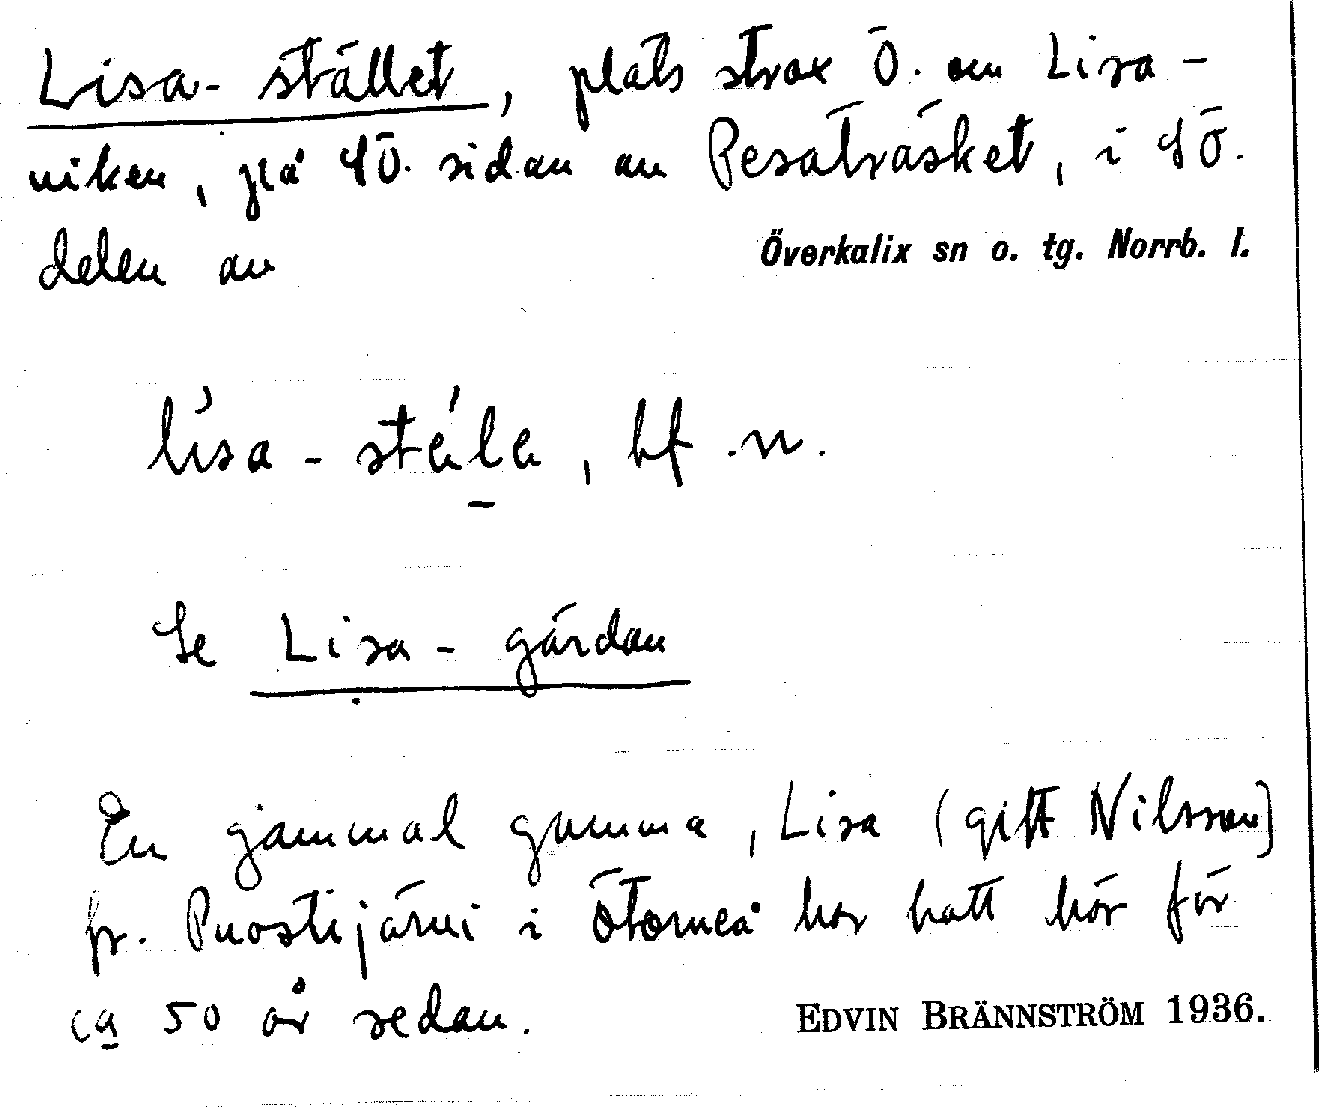 Lisa-stället, plats strax Ö. om Lisa-
viken, på SÖ. sidan av Pesaträsket, i SÖ.
delen av Överkalix sn o. tg. Norrb. l.
bf. n.
Se Lisa-gärdan
En gammal gumma, Lisa (gift Nilsson)
fr. Puostijärvi i ÖTorneå har hatt hör för
ca 50 år sedan. EDVIN BRÄNNSTRÖM 1936.